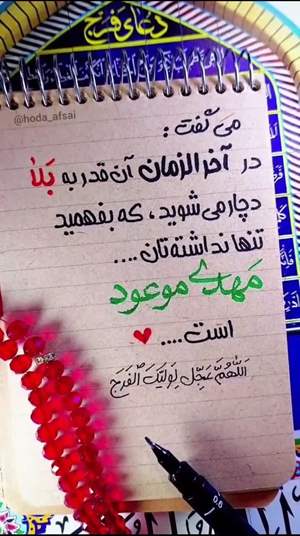 دعای فرج
@hoda_afsai
می گفت :
در آخرالزمان آن قدر به بلا
دچار می شوید ، که بفهمید
تنها نداشته تان ....
مهدی موعود
است ....
اَللّهُمَّ عَجِّل لِوَلیِّکَ الفَرَج
0.6